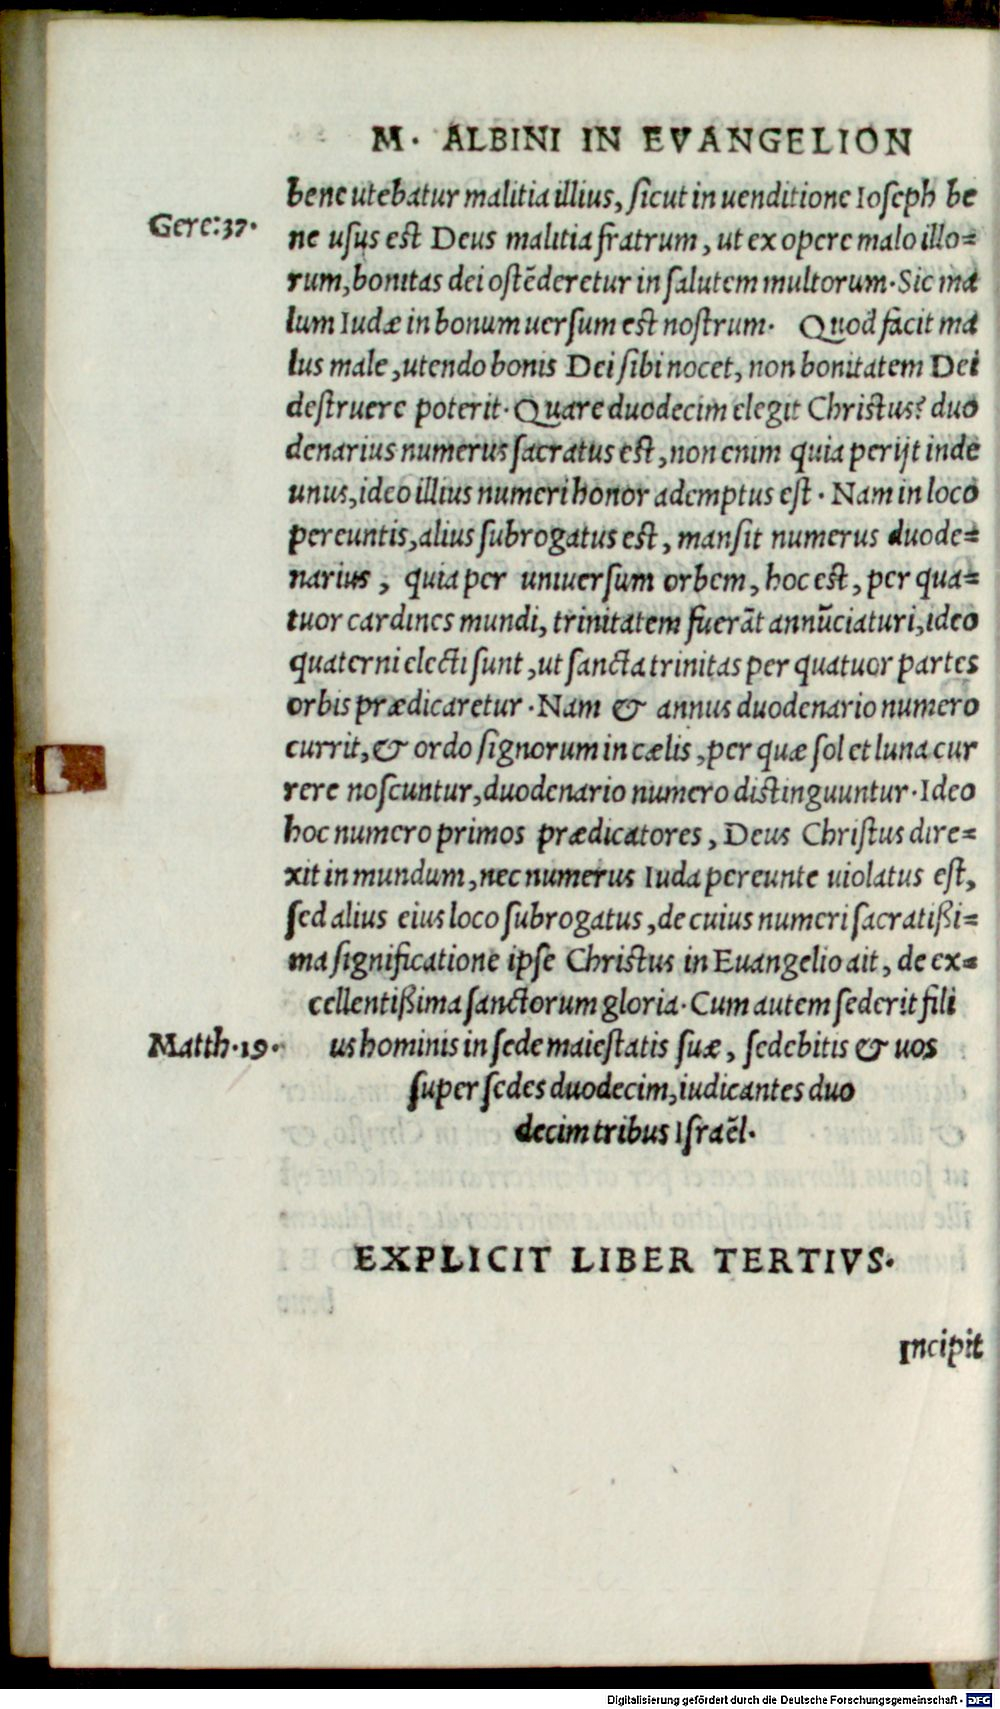 M. ALBINI IN EVANGELION
bene utebatur malitia illius, sicut in uenditione Ioseph be
Gere:37.
ne usus est Deus malitia fratrum, ut ex opere malo illo=
rum, bonitas dei ostẽderetur in salutem multorum. Sic ma
lum Iudæ in bonum uersum est nostrum. Quod facit ma
lus male, utendo bonis Dei sibi nocet, non bonitatem Dei
destruere poterit. Quare duodecim elegit Christus? duo
denarius numerus sacratus est, non enim quia perijt inde
unus, ideo illius numeri honor ademptus est. Nam in loco
pereuntis, alius subrogatus est, mansit numerus duode=
narius, quia per uniuersum orbem, hoc est, per qua=
tuor cardines mundi, trinitatem fuerãt annũciaturi, ideo
quaterni electi sunt, ut sancta trinitas per quatuor partes
orbis prædicaretur. Nam & annus duodenario numero
currit, & ordo signorum in cælis, per quæ sol et luna cur
rere noscuntur, duodenario numero distinguuntur. Ideo
hoc numero primos prædicatores, Deus Christus dire=
xit in mundum, nec numerus Iuda pereunte uiolatus est,
sed alius eius loco subrogatus, de cuius numeri sacratißi=
ma significatione ipse Christus in Euangelio ait, de ex=
cellentißima sanctorum gloria. Cum autem sederit fili
Matth.19.
us hominis in sede maiestatis suæ, sedebitis & uos
super sedes duodecim, iudicantes duo
decim tribus Israẽl.
EXPLICIT LIBER TERTIVS.
Incipit
Digitalisierung gefördert durch die Deutsche Forschungsgemeinschaft - DFG